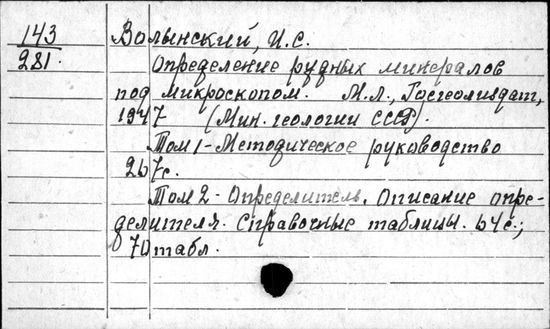 143
281.
Волынский, И.С.
Определение рудных минералов
под микроскопом. М.Л., Госгеолиздат,
1947 (Мин. геологии СССР).
Том 1 - Методическое руководство
267с.
Том 2 - Определитель. Описание опре-
делителя. Справочные таблицы. 64с.;
70 табл.